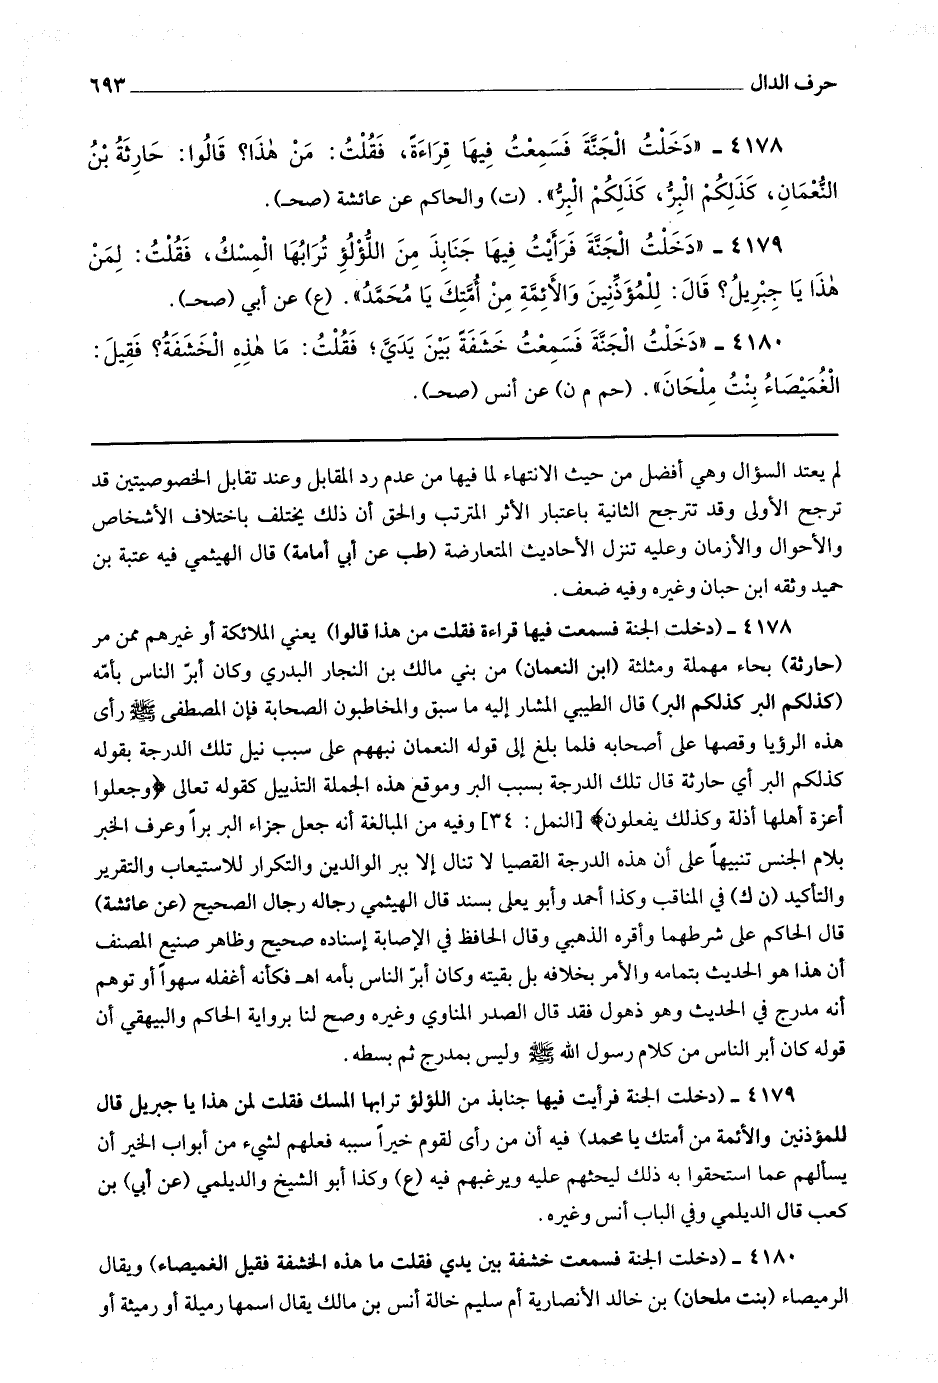 حرف الدال ٦٩٣
٤١٧٨ ـ «دَخَلْتُ الْجَنَّةَ فَسَمِعْتُ فِيهَا قِرَاءَةً، فَقُلْتُ: مَنْ هٰذَا؟ قَالُوا: حَارِثَةُ بْنُ
النُّعْمَانِ، كَذَلِكُمْ الْبِرُّ، كَذَلِكُمْ الْبِرُّ». (ت) والحاكم عن عائشة (صحـ).
٤١٧٩ ـ «دَخَلْتُ الْجَنَّةَ فَرَأَيْتُ فِيهَا جَنَابِذَ مِنَ اللُّؤْلُؤِ تُرَابُهَا الْمِسْكُ، فَقُلْتُ: لِمَنْ
هٰذَا يَا جِبْرِيلُ؟ قَالَ: لِلْمُؤَذِّنِينَ وَالأَئِمَّةِ مِنْ أُمَّتِكَ يَا مُحَمَّدُ». (ع) عن أبي (صحـ).
٤١٨٠ ـ «دَخَلْتُ الْجَنَّةَ فَسَمِعْتُ خَشَفَةً بَيْنَ يَدَيَّ؛ فَقُلْتُ: مَا هٰذِهِ الْخَشَفَةُ؟ فَقِيلَ:
الْغُمَيْصَاءُ بِنْتُ مِلْحَانَ». (حم م ن) عن أنس (صحـ).
لم يعتد السؤال وهي أفضل من حيث الانتهاء لما فيها من عدم رد المقابل وعند تقابل الخصوصيتين قد
ترجح الأولى وقد تترجح الثانية باعتبار الأثر المترتب والحق أن ذلك يختلف باختلاف الأشخاص
والأحوال والأزمان وعليه تنزل الأحاديث المتعارضة (طب عن أبي أمامة) قال الهيثمي فيه عتبة بن
حميد وثقه ابن حبان وغيره وفيه ضعف.
٤١٧٨ ـ (دخلت الجنة فسمعت فيها قراءة فقلت من هذا قالوا) يعني الملائكة أو غيرهم ممن مر
(حارثة) بحاء مهملة ومثلثة (ابن النعمان) من بني مالك بن النجار البدري وكان أبرّ الناس بأمّه
(كذلكم البر كذلكم البر) قال الطيبي المشار إليه ما سبق والمخاطبون الصحابة فإن المصطفى ﷺ رأى
هذه الرؤيا وقصها على أصحابه فلما بلغ إلى قوله النعمان نبههم على سبب نيل تلك الدرجة بقوله
كذلكم البر أي حارثة قال تلك الدرجة بسبب البر وموقع هذه الجملة التذييل كقوله تعالى ﴿وجعلوا
أعزة أهلها أذلة وكذلك يفعلون﴾ [النمل: ٣٤] وفيه من المبالغة أنه جعل جزاء البر براً وعرف الخبر
بلام الجنس تنبيهاً على أن هذه الدرجة القصيا لا تنال إلا ببر الوالدين والتكرار للاستيعاب والتقرير
والتأكيد (ن ك) في المناقب وكذا أحمد وأبو يعلى بسند قال الهيثمي رجاله رجال الصحيح (عن عائشة)
قال الحاكم على شرطهما وأقره الذهبي وقال الحافظ في الإصابة إسناده صحيح وظاهر صنيع المصنف
أن هذا هو الحديث بتمامه والأمر بخلافه بل بقيته وكان أبرّ الناس بأمه اهـ فكأنه أغفله سهواً أو توهم
أنه مدرج في الحديث وهو ذهول فقد قال الصدر المناوي وغيره وصح لنا برواية الحاكم والبيهقي أن
قوله كان أبر الناس من كلام رسول الله ﷺ وليس بمدرج ثم بسطه.
٤١٧٩ ـ (دخلت الجنة فرأيت فيها جنابذ من اللؤلؤ ترابها المسك فقلت لمن هذا يا جبريل قال
للمؤذنين والأئمة من أمتك يا محمد) فيه أن من رأى لقوم خيراً سببه فعلهم لشيء من أبواب الخير أن
يسألهم عما استحقوا به ذلك ليحثهم عليه ويرغبهم فيه (ع) وكذا أبو الشيخ والديلمي (عن أبي) بن
كعب قال الديلمي وفي الباب أنس وغيره.
٤١٨٠ ـ (دخلت الجنة فسمعت خشفة بين يدي فقلت ما هذه الخشفة فقيل الغميصاء) ويقال
الرميصاء (بنت ملحان) بن خالد الأنصارية أم سليم خالة أنس بن مالك يقال اسمها رميلة أو رميثة أو